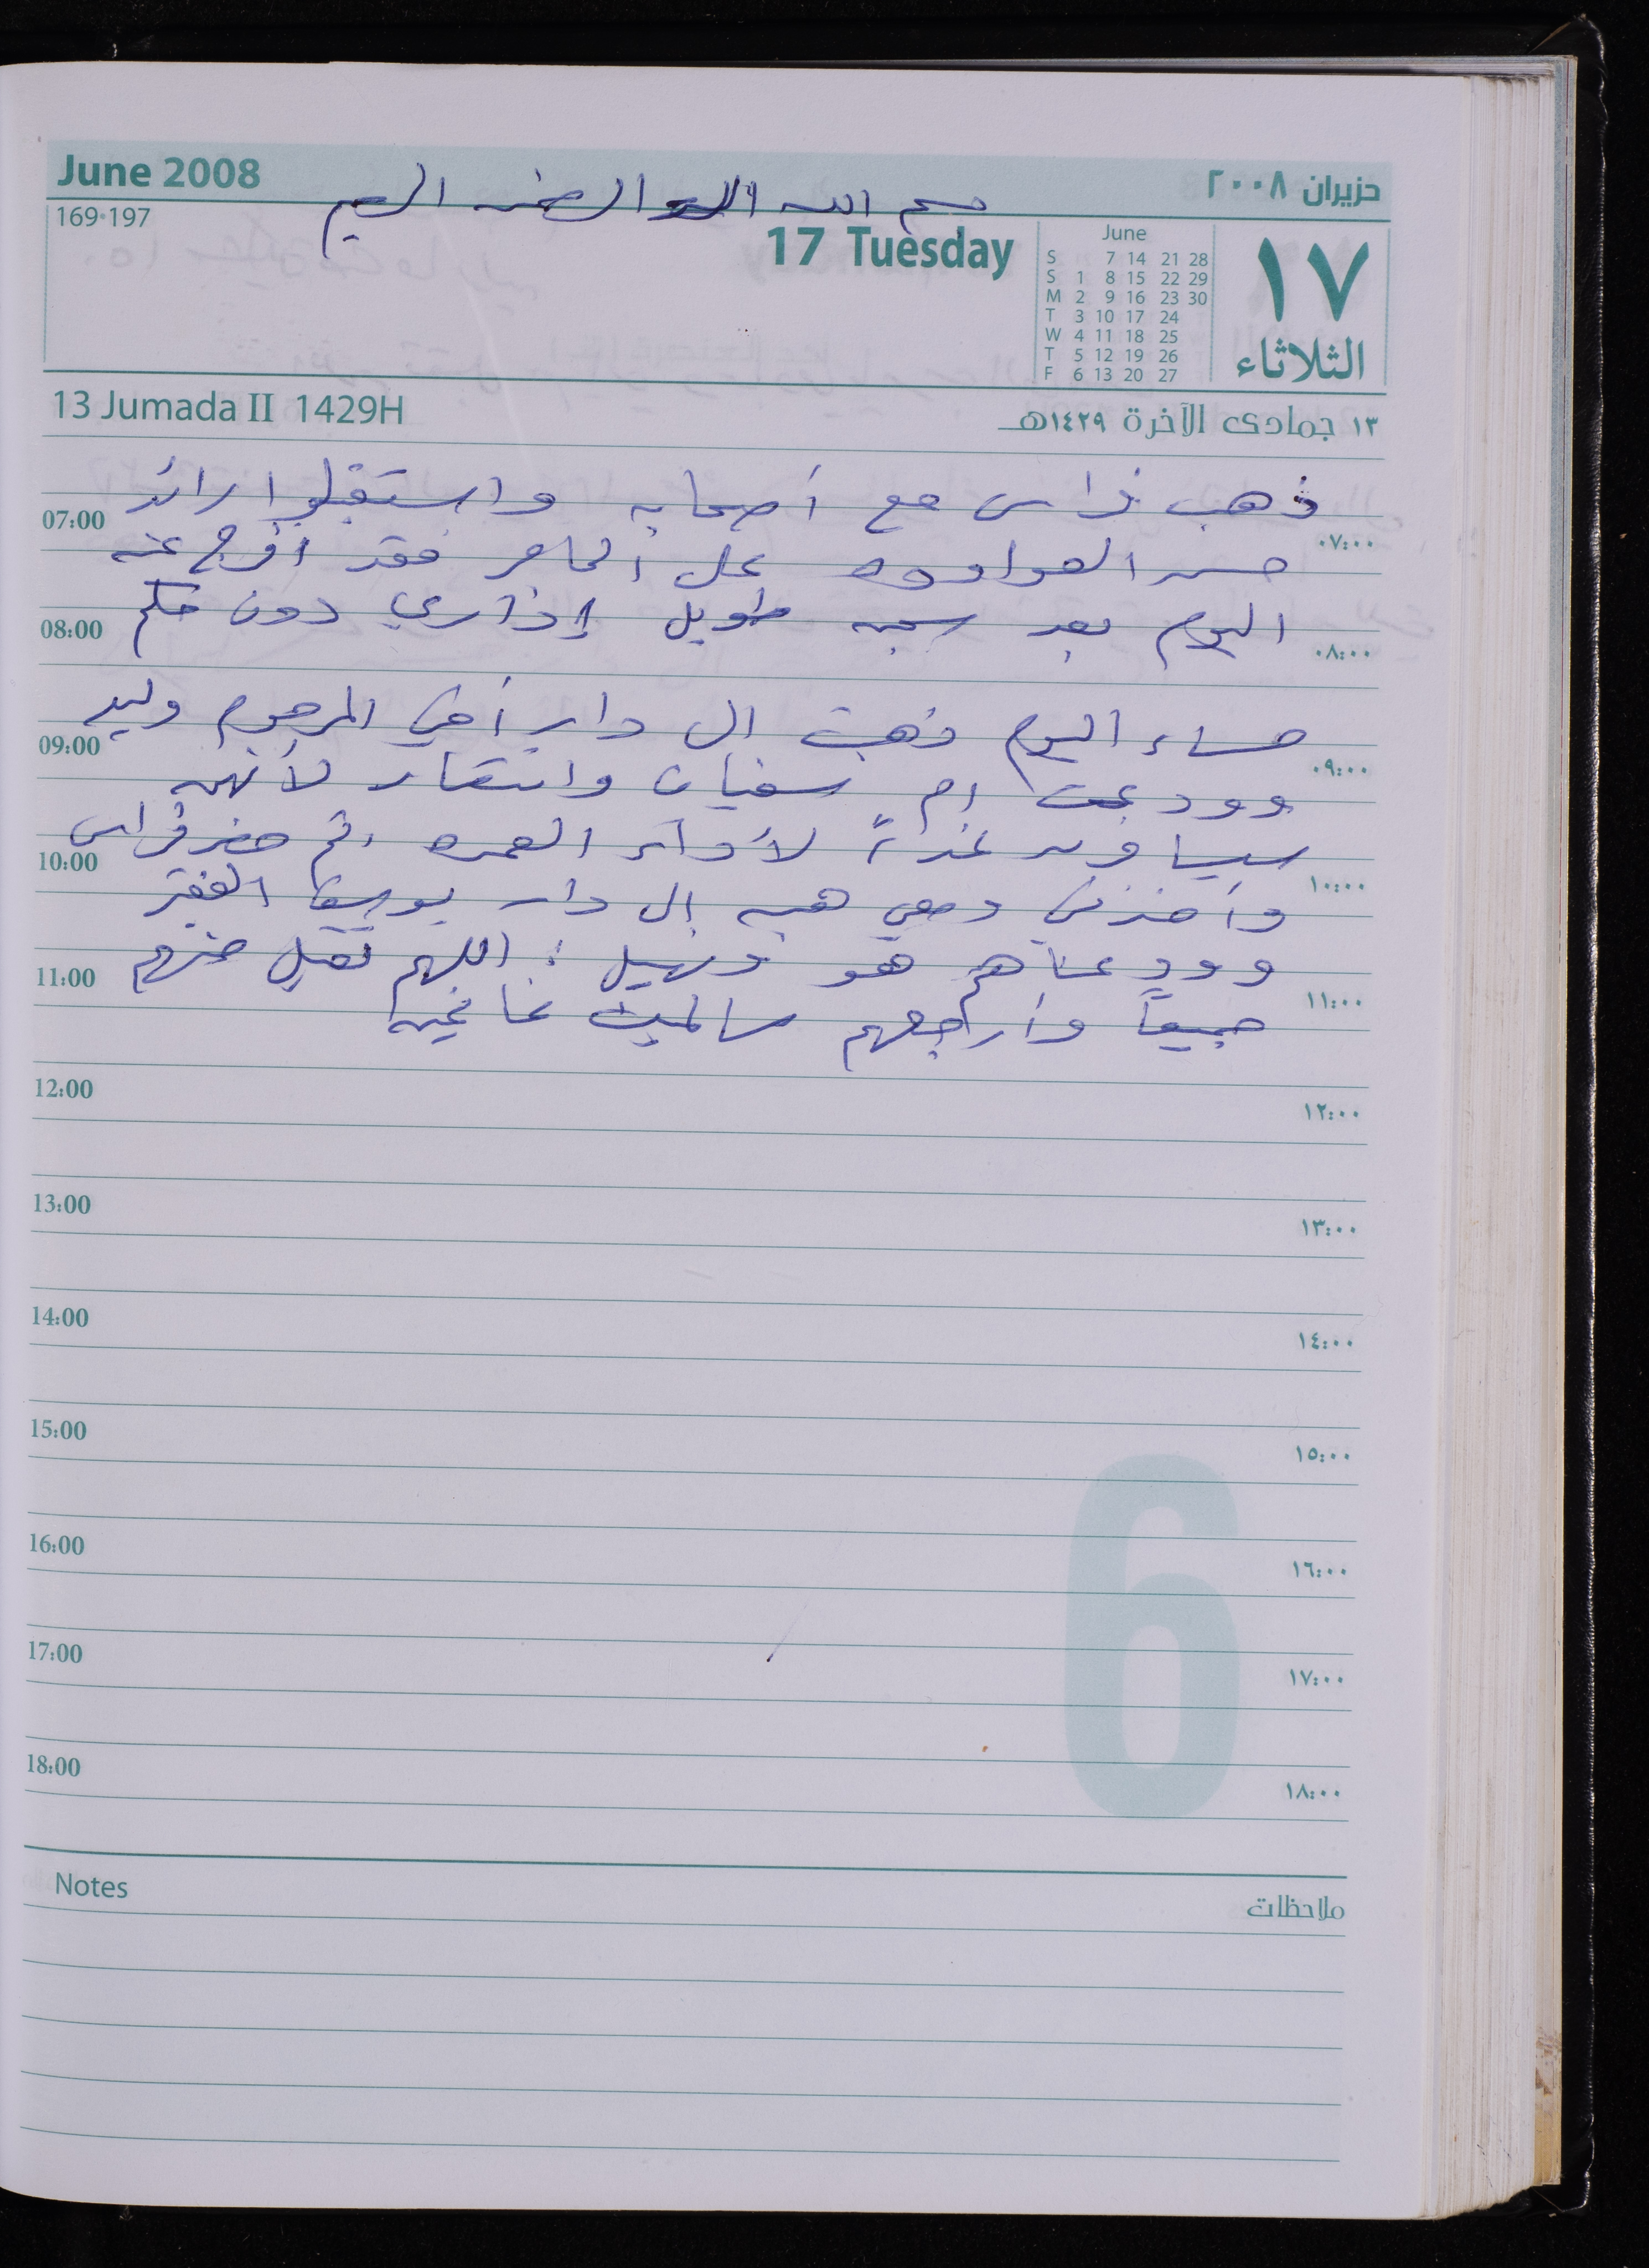 June 2008
حزيران ٢٠٠٨
بسم الله الرحمن الرحيم
169-197
17 Tuesday
June
S 7 14 21 28
S 1 8 15 22 29
M 2 9 16 23 30
T 3 10 17 24
W 4 11 18 25
T 5 12 19 26
F 6 13 20 27
١٧
الثلاثاء
13 Jumada II 1429H
١٣ جمادى الآخرة ١٤٢٩هـ
ذهب فراس مع أصحابه واستقبلوا رائد
07:00 ٠٧:٠٠
حسن على الحاجز فقد افرج عنه
اليوم بعد سجن طويل إداري دون حكم
08:00 ٠٨:٠٠
مساء اليوم ذهبت الى دار أخي المرحوم وليد
09:00 ٠٩:٠٠
وودعت ام سفيان وانتصار لأنهن
سيسافرن غداً لأداء العمره ثم حضر فراس
10:00 ١٠:٠٠
وأخذني ومعي هبه الى دار
وودعناهم هو ; اللهم تقبل منهم
11:00 ١١:٠٠
جميعاً وأرجعهم سالمين غانمين
12:00 ١٢:٠٠
13:00 ١٣:٠٠
14:00 ١٤:٠٠
15:00 ١٥:٠٠
16:00 ١٦:٠٠
17:00 ١٧:٠٠
18:00 ١٨:٠٠
6
Notes
ملاحظات